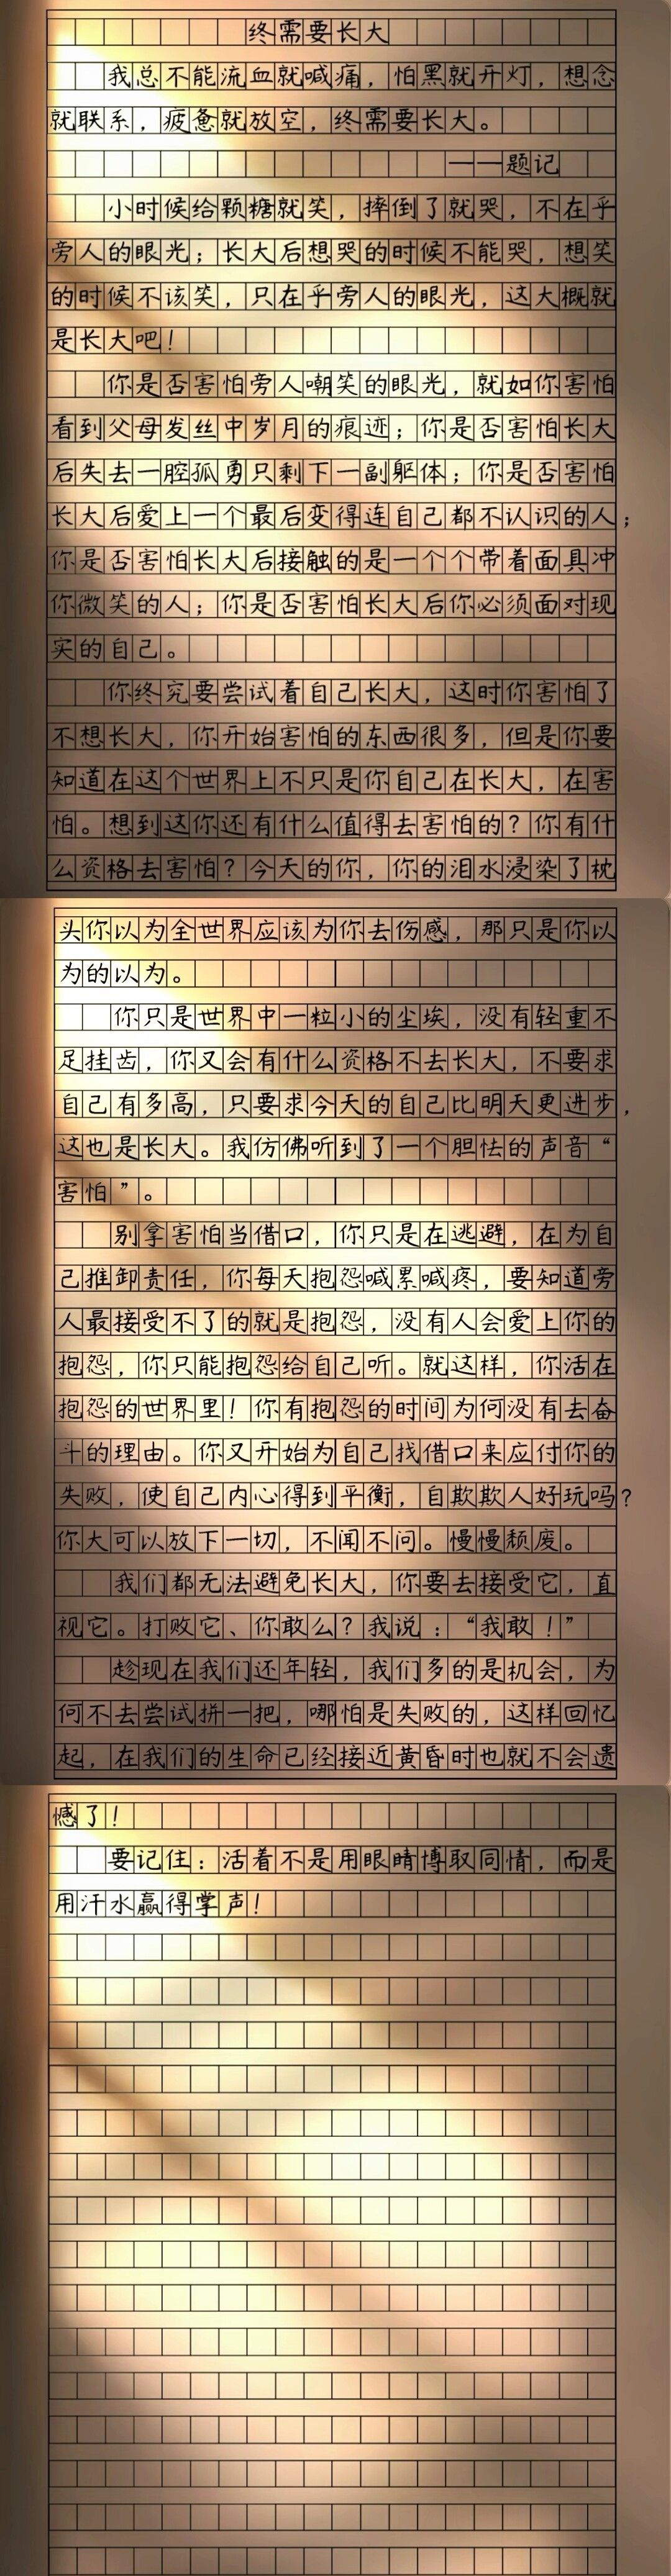 终需要长大
我总不能流血就喊痛，怕黑就开灯，想念
就联系，疲惫就放空，终需要长大。
——题记
小时候给颗糖就笑，摔倒了就哭，不在乎
旁人的眼光；长大后想哭的时候不能哭，想笑
的时候不该笑，只在乎旁人的眼光，这大概就
是长大吧！
你是否害怕旁人嘲笑的眼光，就如你害怕
看到父母发丝中岁月的痕迹；你是否害怕长大
后失去一腔孤勇只剩下一副躯体；你是否害怕
长大后爱上一个最后变得连自己都不认识的人；
你是否害怕长大后接触的是一个个带着面具冲
你微笑的人；你是否害怕长大后你必须面对现
实的自己。
你终究要尝试着自己长大，这时你害怕了
不想长大，你开始害怕的东西很多，但是你要
知道在这个世界上不只是你自己在长大，在害
怕。想到这你还有什么值得去害怕的？你有什
么资格去害怕？今天的你，你的泪水浸染了枕
头你以为全世界应该为你去伤感，那只是你以
为的以为。
你只是世界中一粒小的尘埃，没有轻重不
足挂齿，你又会有什么资格不去长大，不要求
自己有多高，只要求今天的自己比明天更进步，
这也是长大。我仿佛听到了一个胆怯的声音“
害怕”。
别拿害怕当借口，你只是在逃避，在为自
己推卸责任，你每天抱怨喊累喊疼，要知道旁
人最接受不了的就是抱怨，没有人会爱上你的
抱怨，你只能抱怨给自己听。就这样，你活在
抱怨的世界里！你有抱怨的时间为何没有去奋
斗的理由。你又开始为自己找借口来应付你的
失败，使自己内心得到平衡，自欺欺人好玩吗？
你大可以放下一切，不闻不问。慢慢颓废。
我们都无法避免长大，你要去接受它，直
视它。打败它、你敢么？我说：“我敢！”
趁现在我们还年轻，我们多的是机会，为
何不去尝试拼一把，哪怕是失败的，这样回忆
起，在我们的生命已经接近黄昏时也就不会遗
憾了！
要记住：活着不是用眼睛博取同情，而是
用汗水赢得掌声！